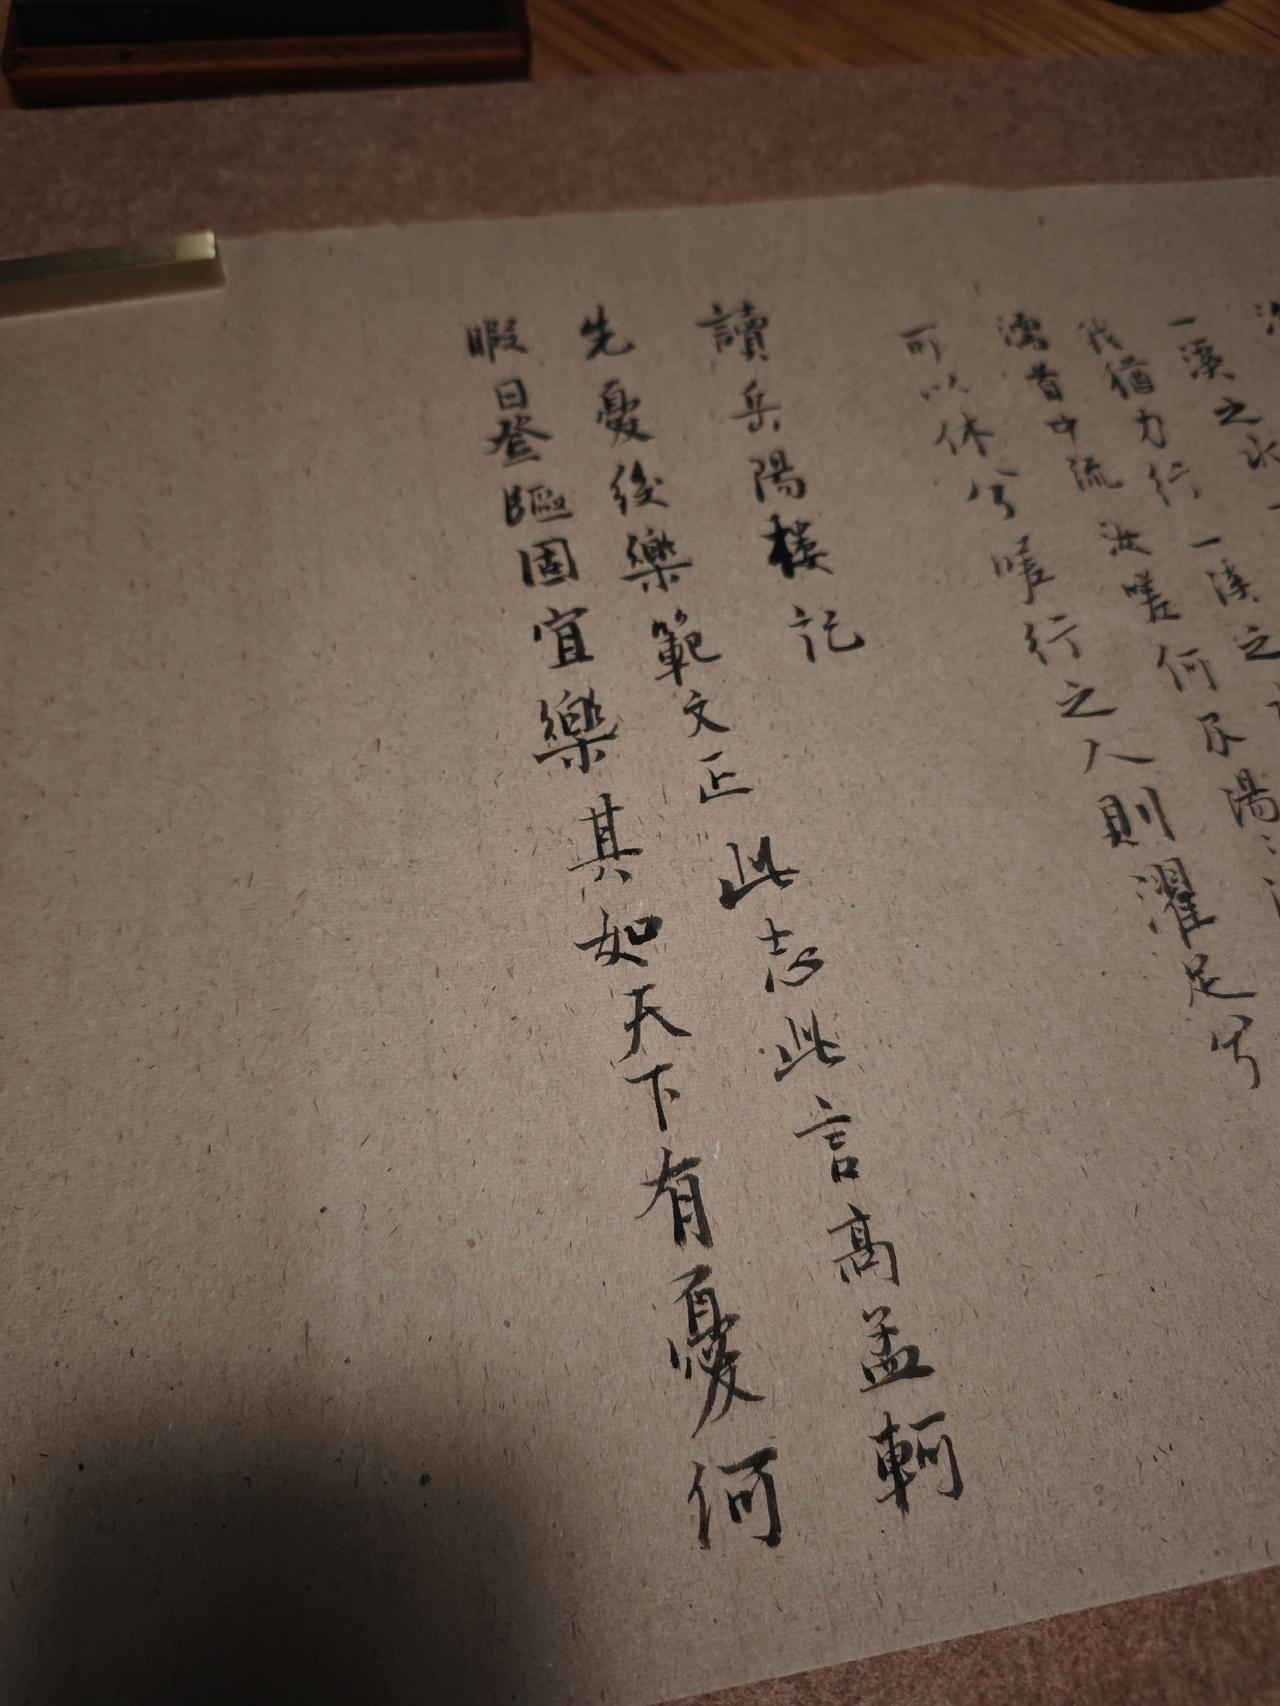 一溪之水一
我猶力行一溪之
中流汝嗟何不湯
可以休兮嗟行之人則濯足兮
讀岳陽楼記
先憂後樂範文正此志此言高孟軻
暇日登臨固宜樂其如天下有憂何